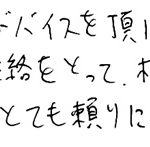 ドバイスを頂
絡をとって、
とても頼りに